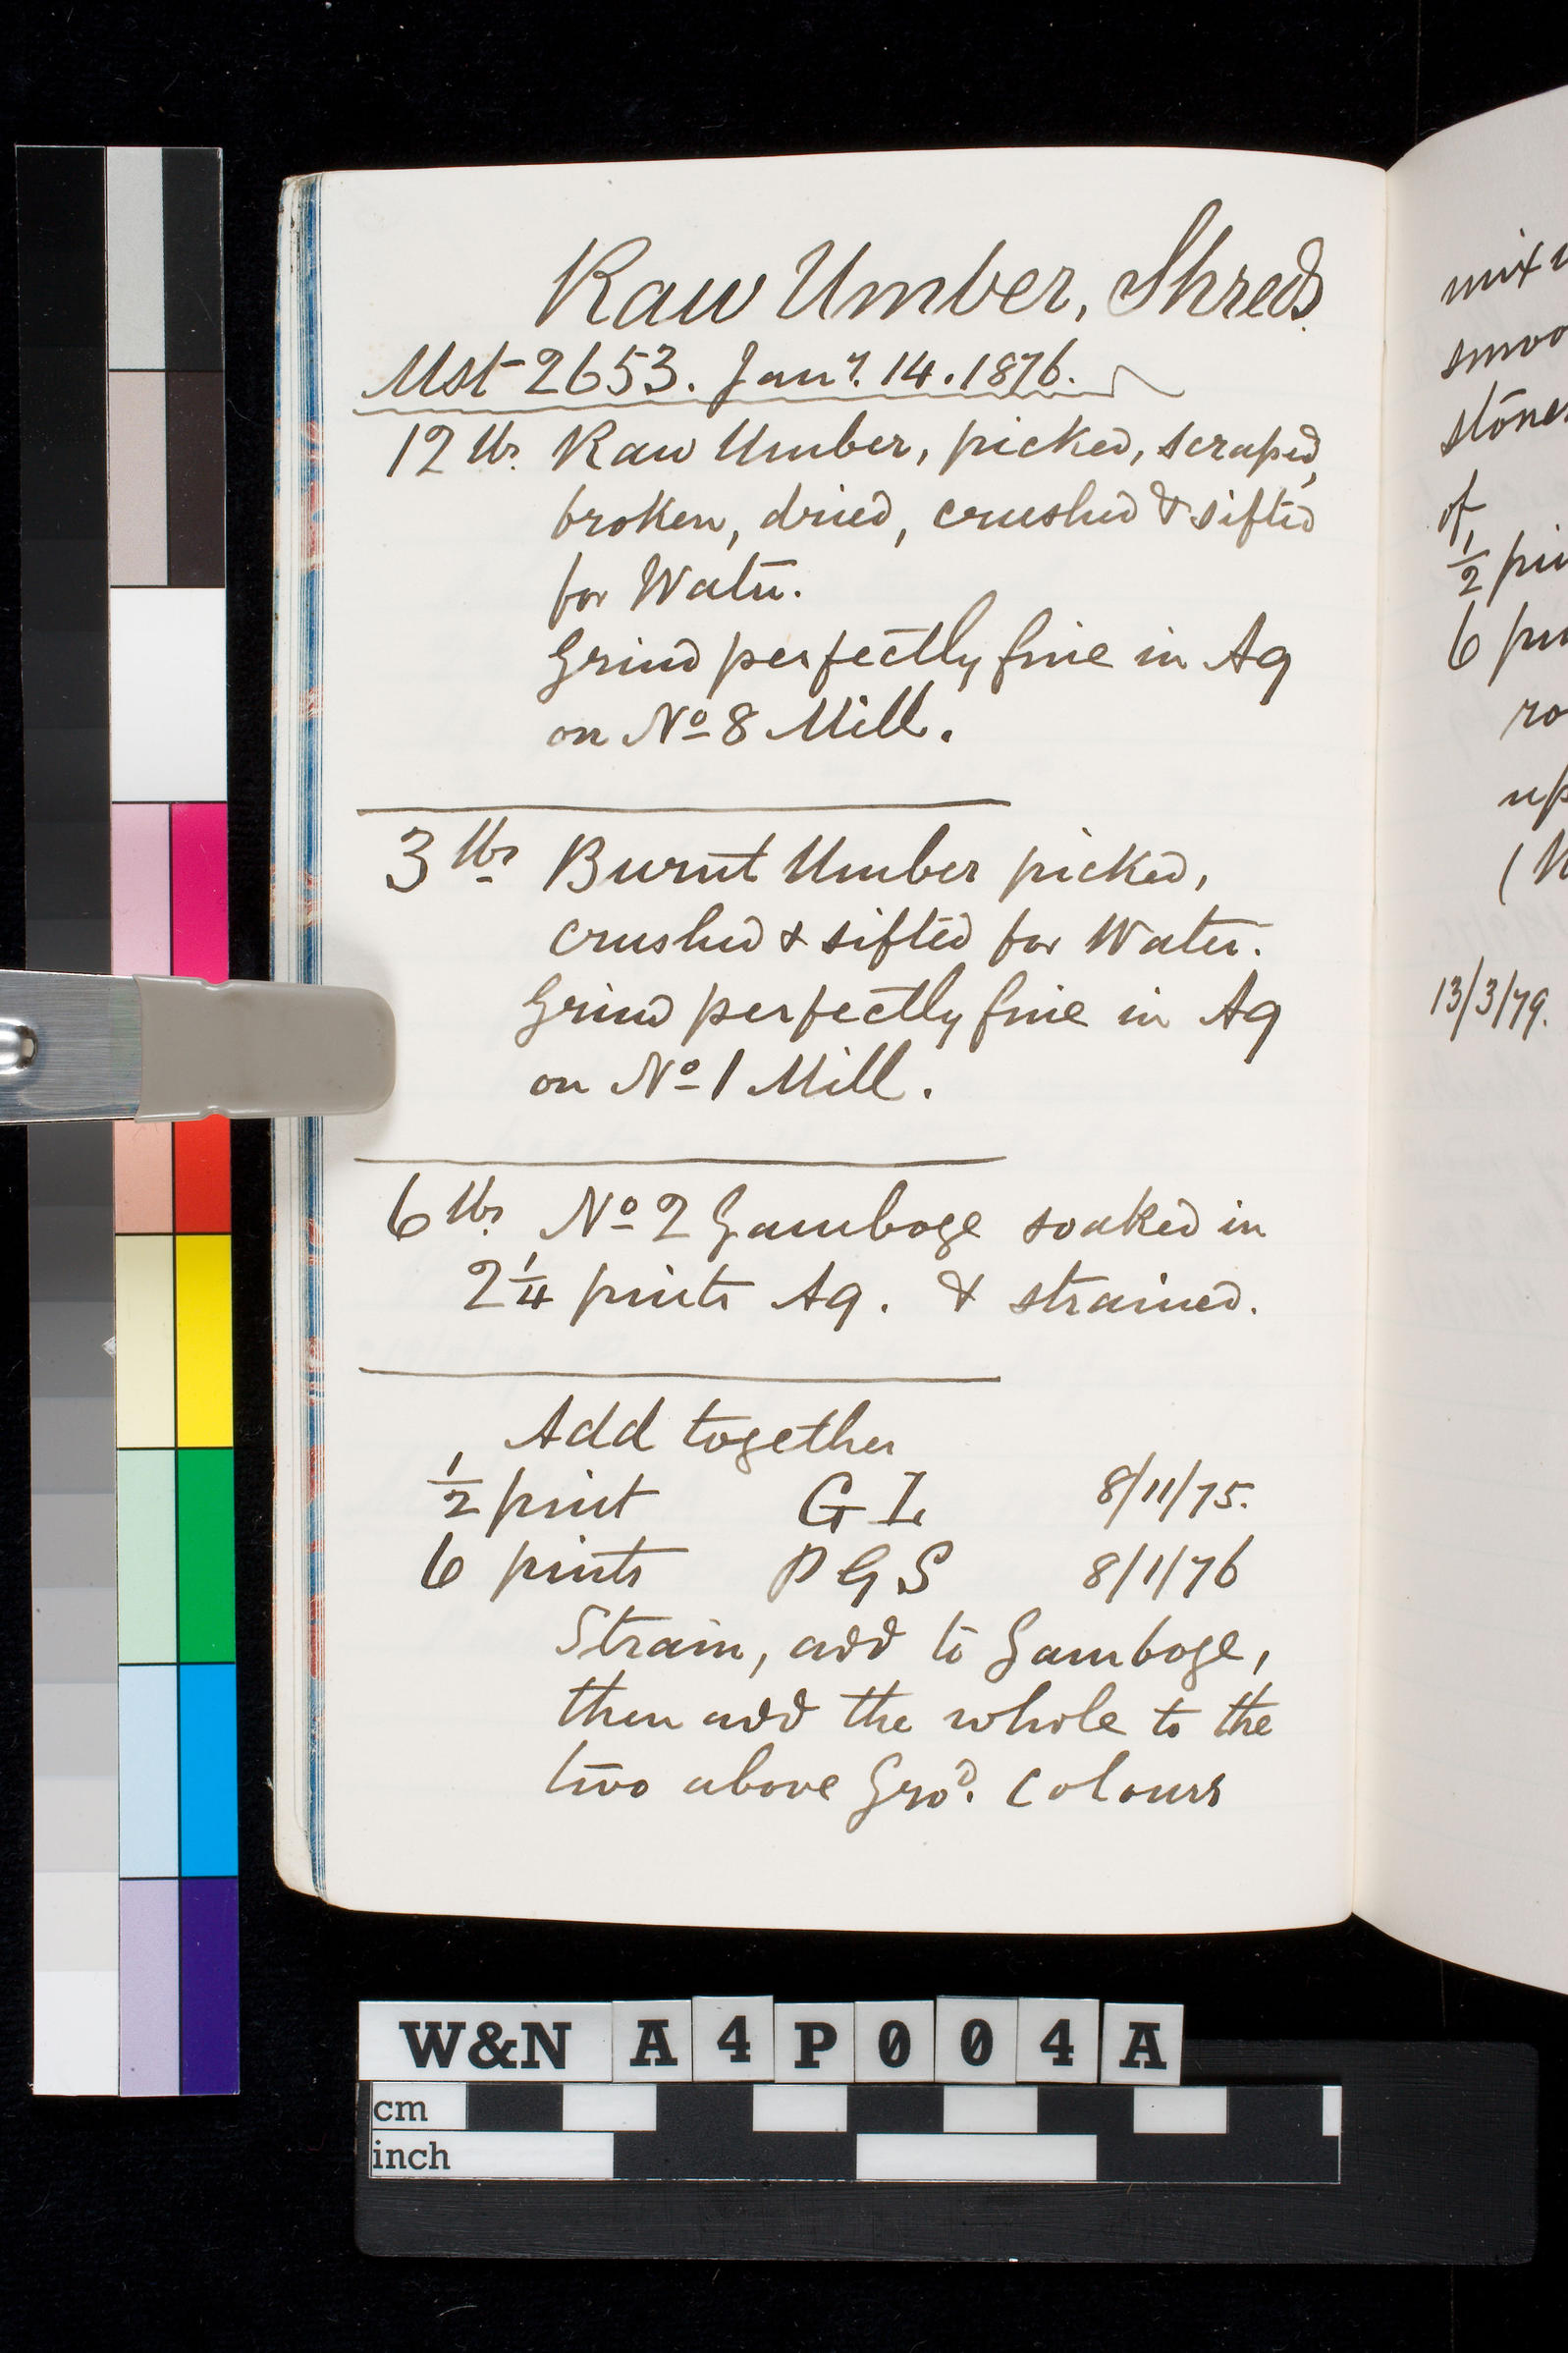 Raw Umber, Shreds
Mst 2653. Jany. 14. 1876.
12 lbs. Raw Umber, picked, scraped,
broken, dried, crushed & sifted
for Water.
Grind perfectly fine in Aq
on No 8 Mill.
3 lbs Burnt Umber picked,
crushed & sifted for Water.
Grind perfectly fine in Aq
on No 1 Mill.
6 lbs. No 2 Gamboge soaked in
2 1/4 pints Aq. & strained.
Add together
1/2 pint G I 8/11/75.
6 pints P G S 8/1/76
Strain, add to Gamboge,
then add the whole to the
two above Gro'd. Colours
of
1/2
6
13/3/79.
W&N A4P004A
cm
inch